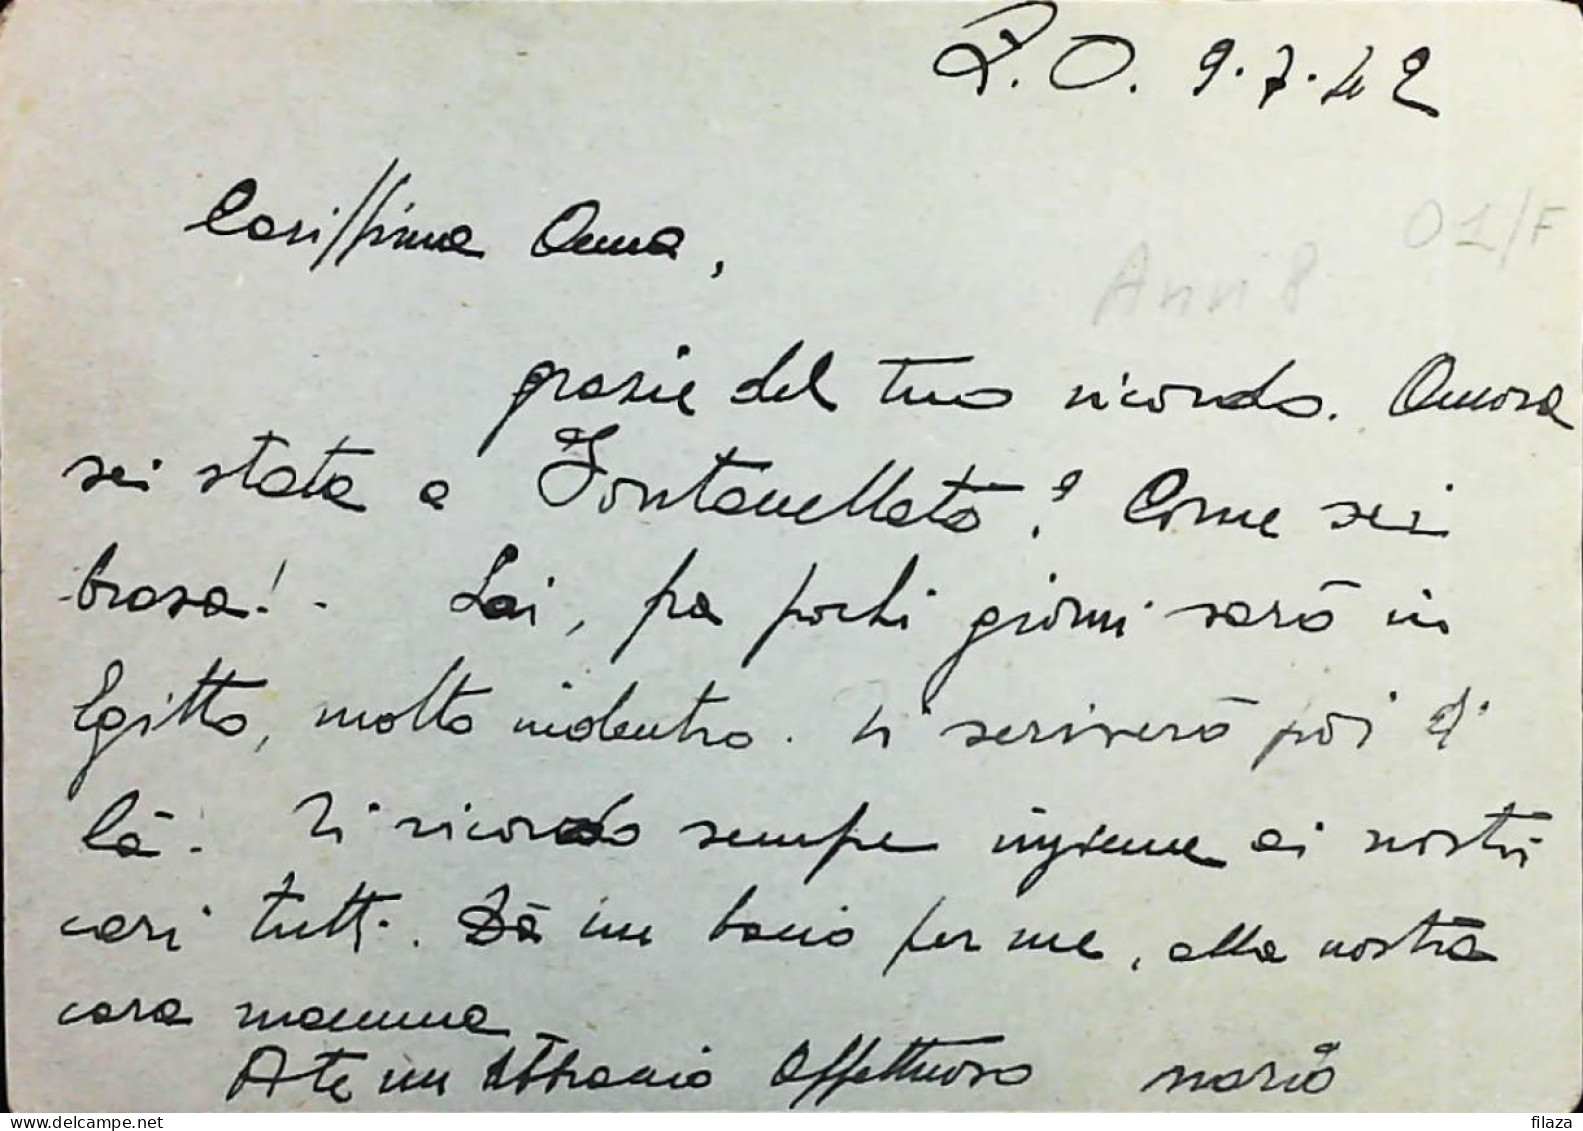 P.O. 9.7.42
Carissima Anna,
01/F
Ann 8
grazie del tuo ricordo. Ancora
sei stata a Fontanellato? Come sei
brava! - Sai, fra pochi giorni sarò in
Egitto, molto indentro. Ti scriverò poi di
là. Ti ricordo sempre insieme ai nostri
cari tutti. Dà un bacio per me, alla nostra
cara mamma
A te un abbraccio affettuoso Mario
filaza.eu
filaza